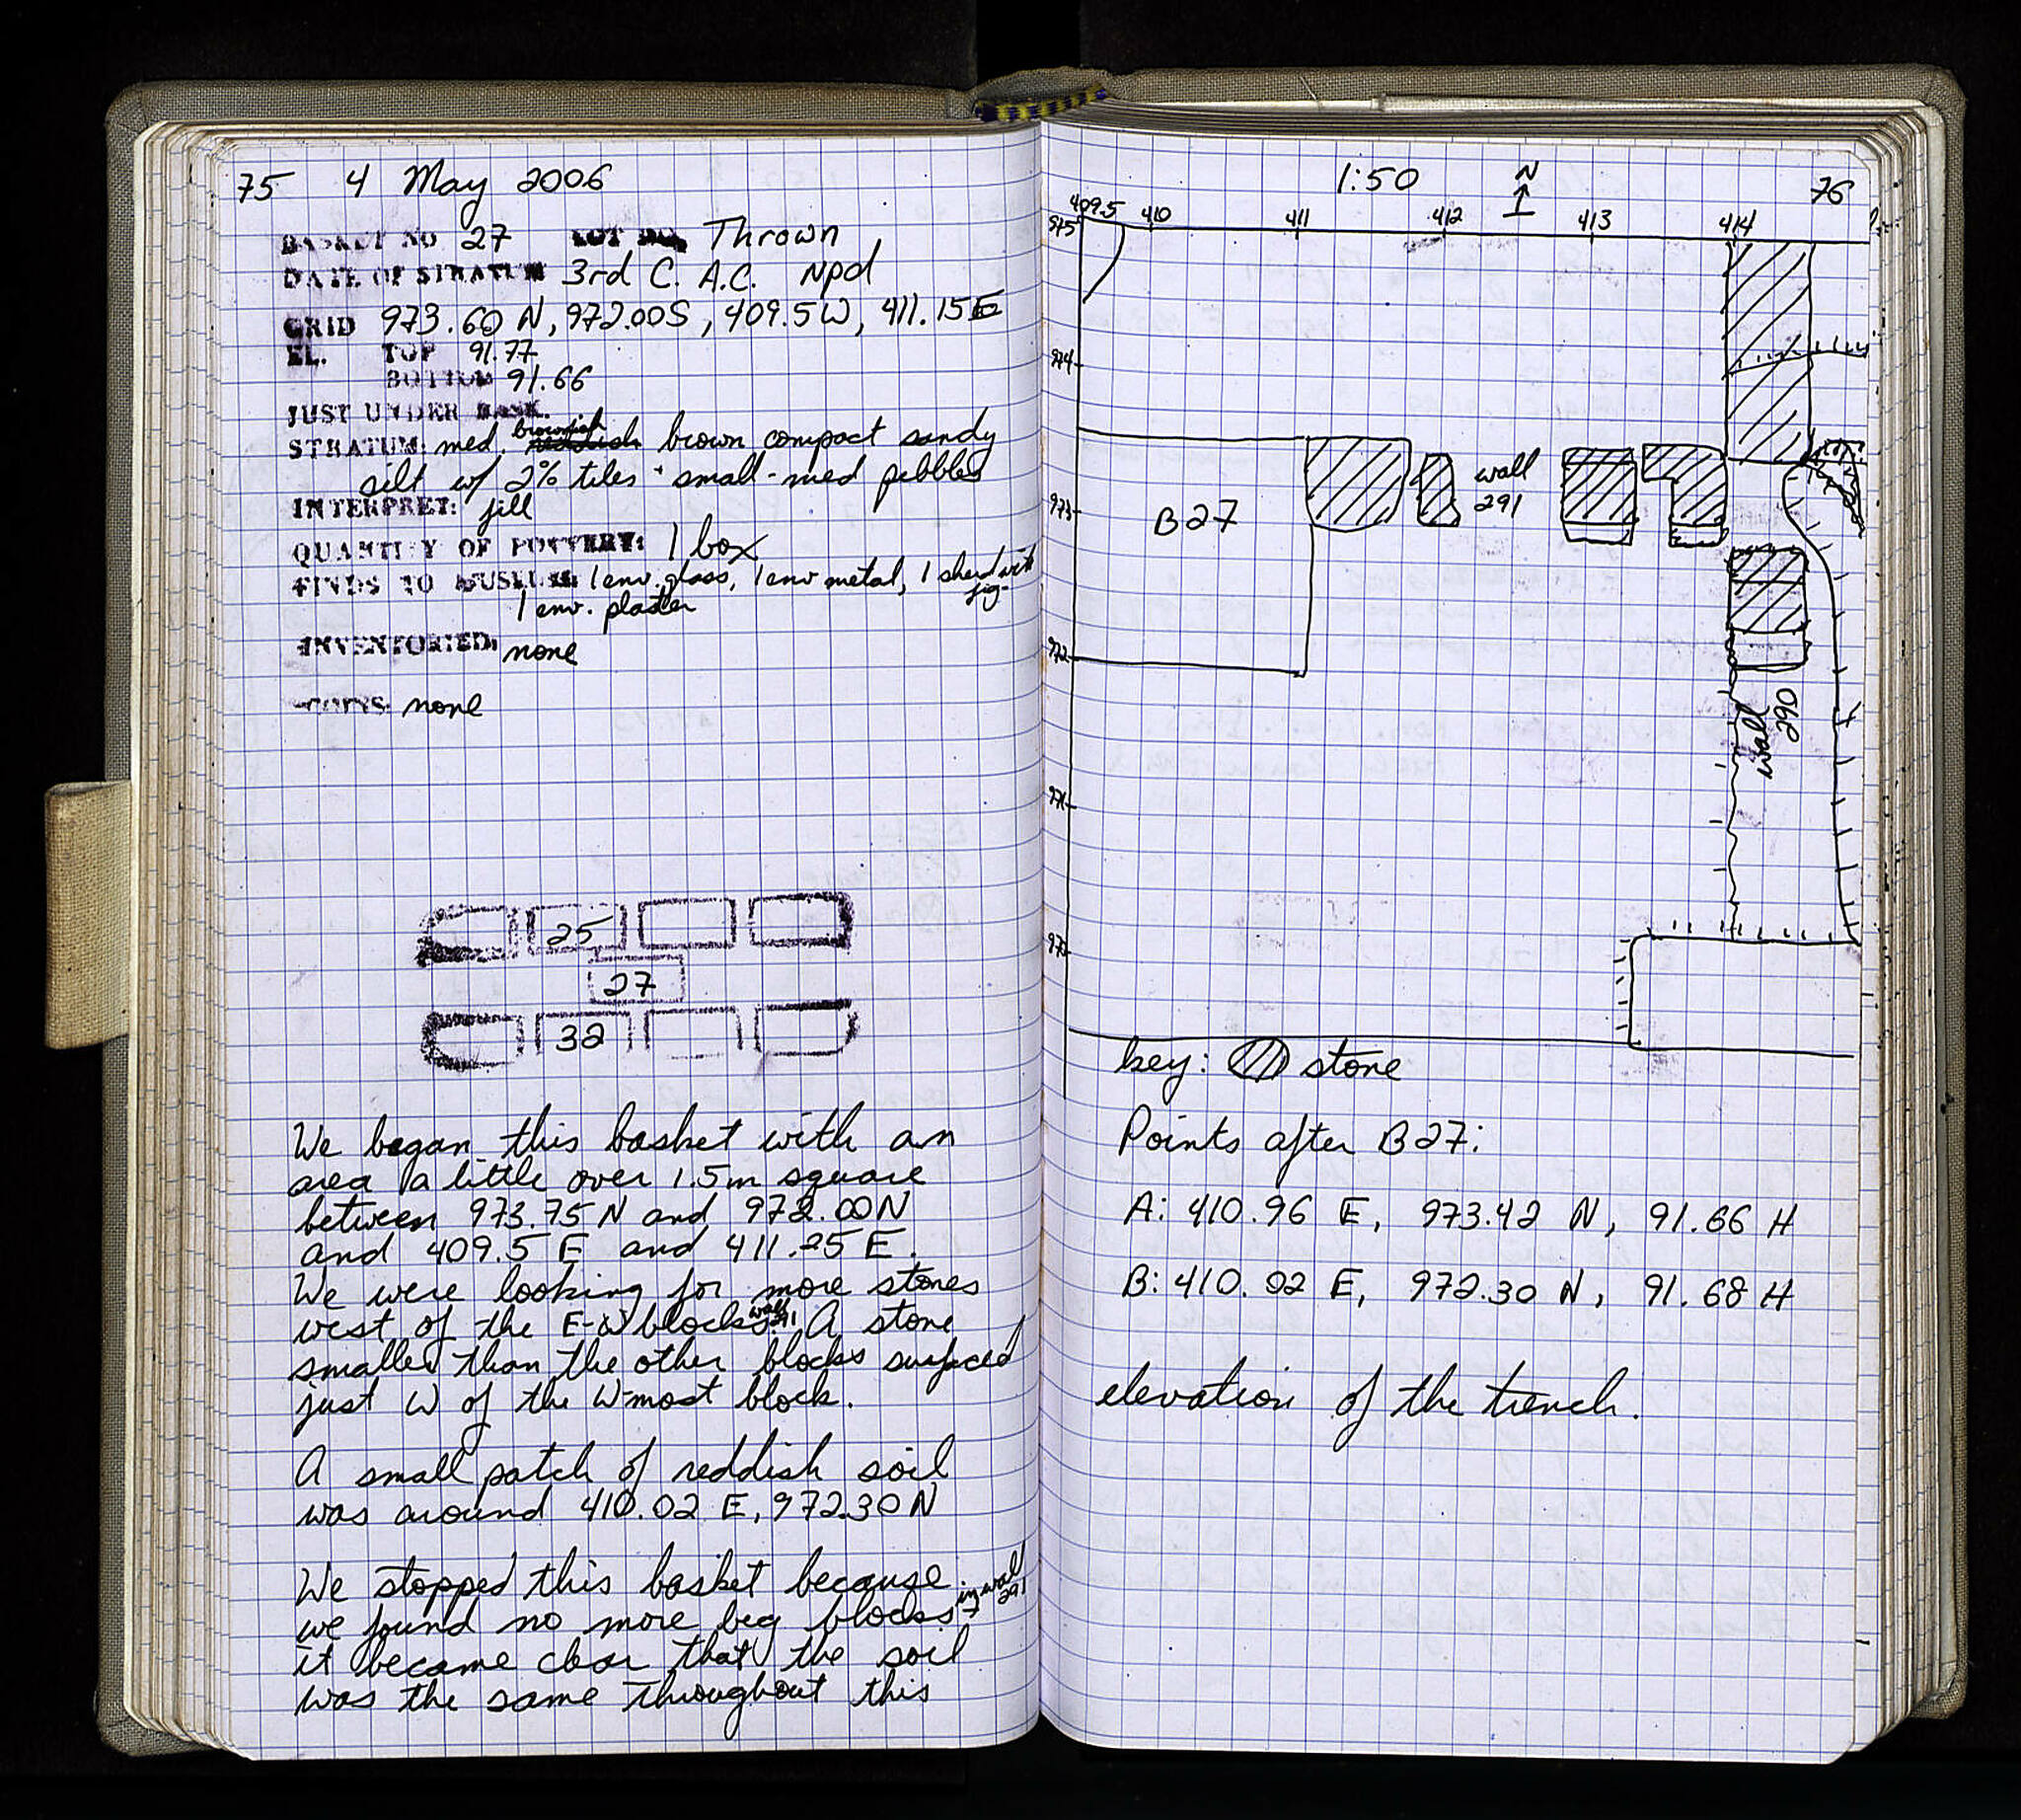 75 4 May 2006
BASKET NO 27 LOT NO. Thrown
DATE OF STRATUM 3rd C. A.C. Npd
GRID 973.60 N, 972.00S, 409.5W, 411.15E
EL. TOP 91.77
BOTTOM 91.66
JUST UNDER BASK.
STRATUM: med. brownish brown compact sandy
silt w/ 2% tiles + small-med pebbles
INTERPRET: fill
QUANTITY OF POTTERY: 1 box
FINDS TO MUSEUM: 1 env. glass, 1 env metal, 1 sherd with fig.
1 env. plaster
INVENTORIED: none
COINS: none
25
27
32
We began this basket with an
area a little over 1.5m square
between 973.75 N and 972.00 N
and 409.5 E and 411.25 E.
We were looking for more stones
west of the E-W blocks wall 291. A stone
smaller than the other blocks surfaced
just W of the W-most block.
A small patch of reddish soil
was around 410.02 E, 972.30 N
We stopped this basket because
we found no more big blocks in wall 291
it became clear that the soil
was the same throughout this
1:50 N 76
409.5 410 411 412 413 414
975
974
973
972
971
970
B27
wall
291
wall
290
key: stone
Points after B27:
A: 410.96 E, 973.42 N, 91.66 H
B: 410.02 E, 972.30 N, 91.68 H
elevation of the trench.